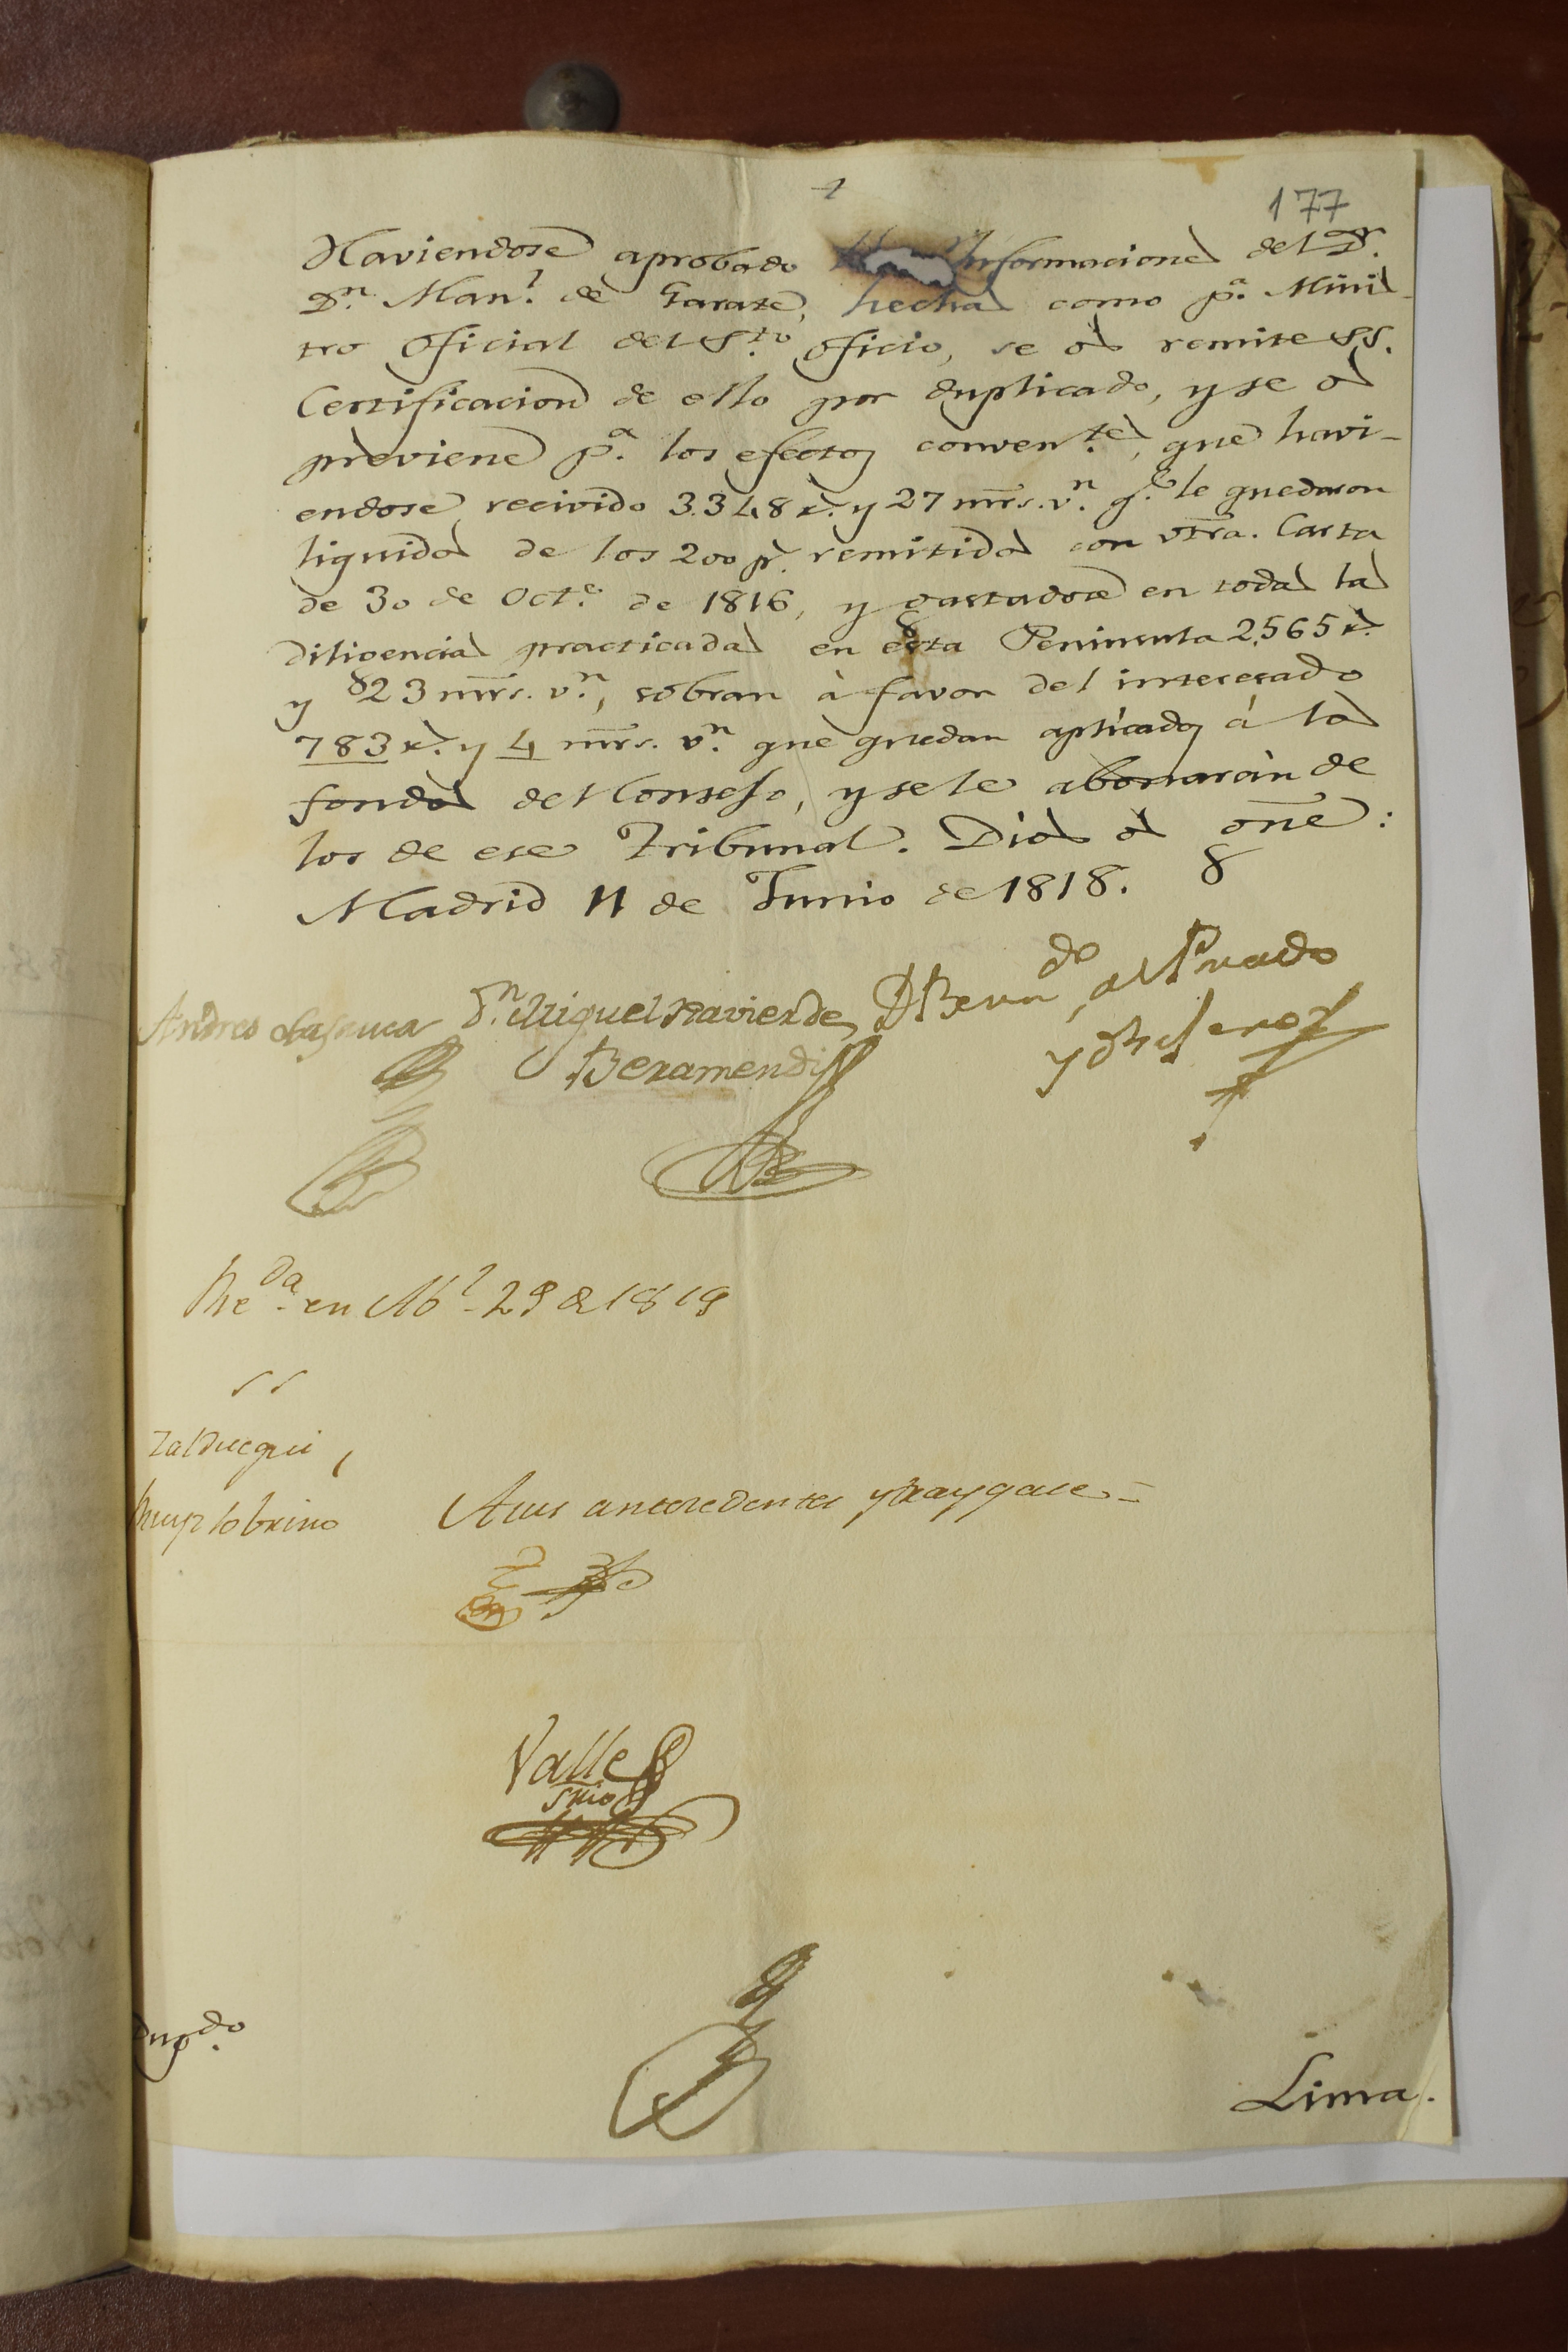 177
Haviendose aprobado Informaciones del Dr.
Dn. Manl. de Garate, hechas como pa. Minis-
tro Oficial del Sto. Oficio, se os remite SS.
Certificacion de ello por duplicado, y se os
previene pa. los efectos conventes, que havi-
endose recivido 3.348 rs. y 27 mrs. vn. qe. le quedaron
liquidos de los 200 ps. remitidos con vtra. Carta
de 30 de Octe. de 1816, y gastadose en todas las
diligencias practicadas en esta Peninsula 2.565 rs.
y 23 mrs. vn., sobran à favor del interesado
783 rs. y 4 mrs. vn. que quedan aplicados á los
fondos del Consejo, y se le abonarán de
los de ese Tribunal. Dios os gne:
Madrid 11 de Junio de 1818.
Andres Lasauca Dn. Miguel Xavier de D Berndo. del Prado
Beramendi
y Obejero
Reda. en Abl. 29 de 1819
SS
Zalduegui,
Ruiz Sobrino
A sus antecedentes y traygase.=
Valle
Srio
Dupdo.
Lima.